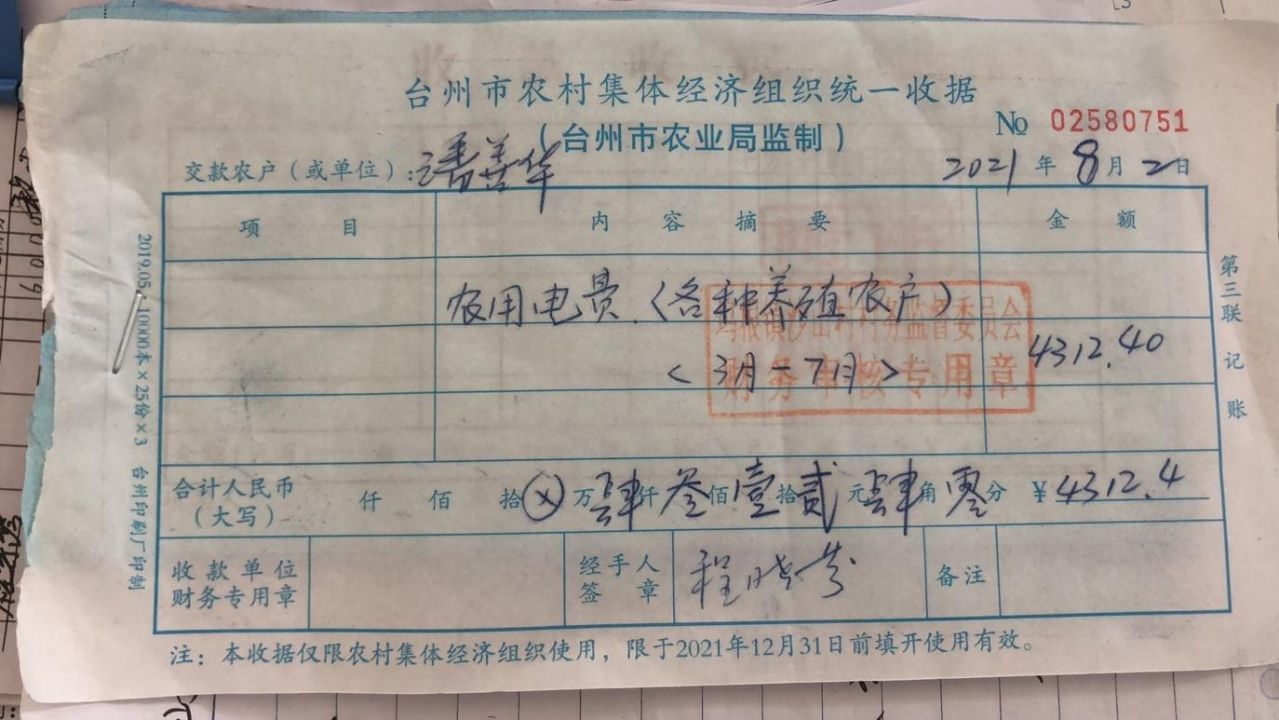 台州市农村集体经济组织统一收据
（台州市农业局监制）
No 02580751
交款农户（或单位）：潘善华
2021年8月2日
项目 内容摘要 金额
农用电费（各种养殖农户）
<3月-7月> 4312.40
财务审核专用章
合计人民币（大写） 仟 佰 拾ⓧ万肆仟叁佰壹拾贰元肆角零分 ¥4312.4
收款单位财务专用章 经手人签章 程晓芬 备注
注：本收据仅限农村集体经济组织使用，限于2021年12月31日前填开使用有效。
第三联 记账
2019.05. 10000本×25份×3 台州印刷厂印制